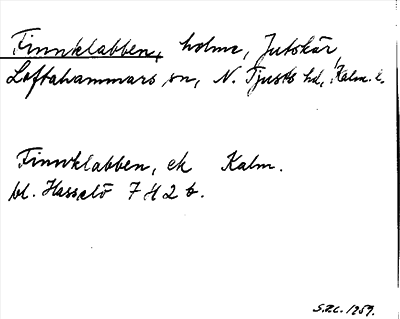 Finnklabben, holme, Jutskär,
Loftahammars sn, N. Tjusts hd, Kalm. l.
Finnklabben, ek Kalm.
bl. Hasselö 7 H 2 b.
1959.